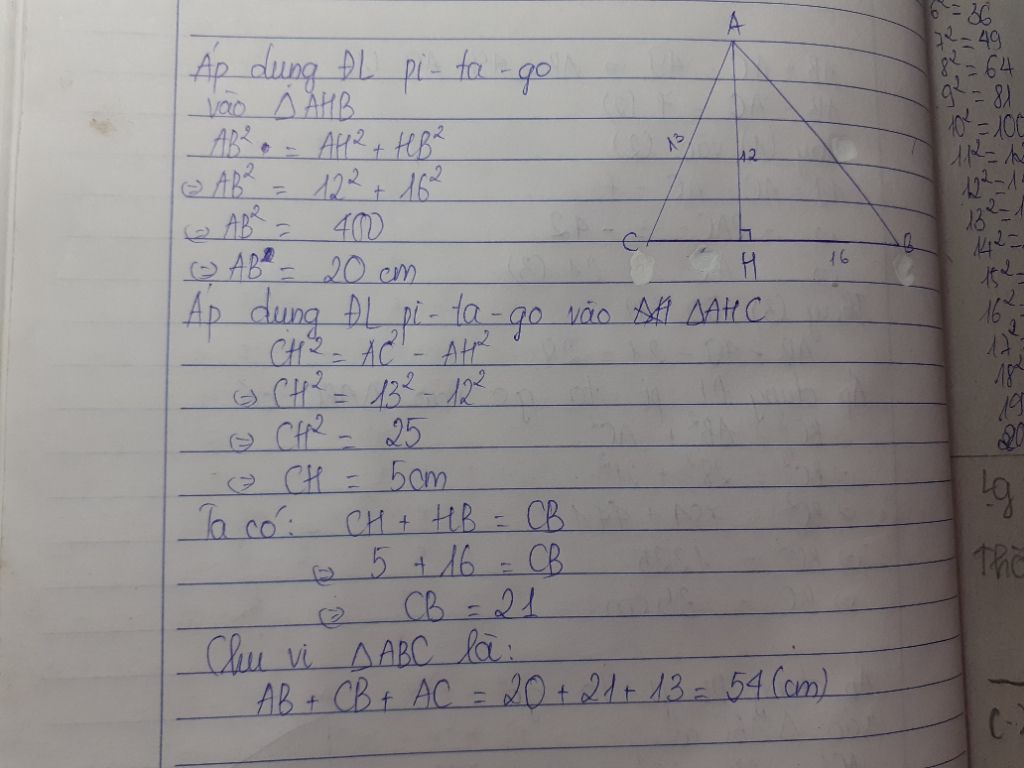 Áp dụng ĐL pi-ta-go
vào △AHB
AB² = AH² + HB²
⇔ AB² = 12² + 16²
⇔ AB² = 400
⇔ AB = 20 cm
Áp dụng ĐL pi-ta-go vào △AHC
CH² = AC² - AH²
⇔ CH² = 13² - 12²
⇔ CH² = 25
⇔ CH = 5cm
Ta có: CH + HB = CB
⇔ 5 + 16 = CB
⇔ CB = 21
Chu vi △ABC là:
AB + CB + AC = 20 + 21 + 13 = 54 (cm)
A
13
12
C
H
16
B
6² = 36
7² = 49
8² = 64
9² = 81
10² = 100
11² = 12
12² = 1
13² = 1
14² =
15² =
16² =
17²
18²
19
20